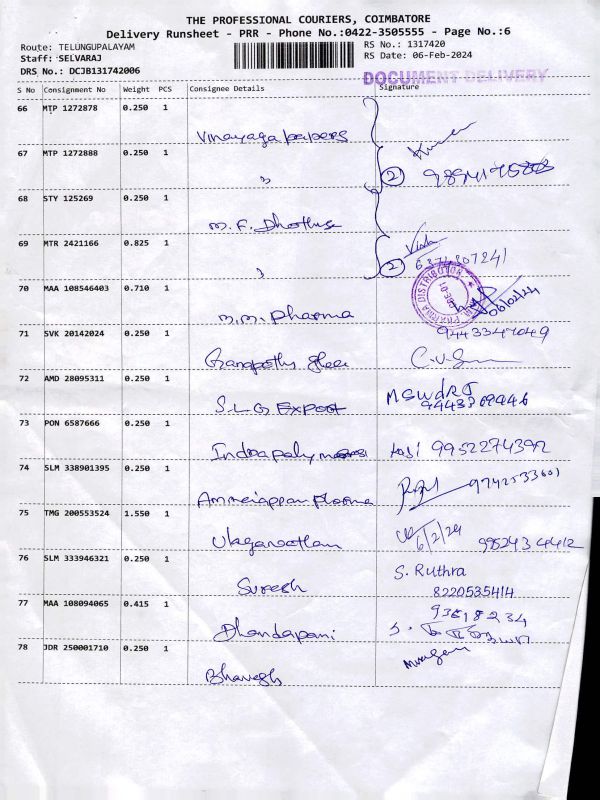 THE PROFESSIONAL COURIERS, COIMBATORE
Delivery Runsheet - PRR - Phone No.:0422-3505555 - Page No.:6
Route: TELUNGUPALAYAM
RS No.: 1317420
Staff: SELVARAJ
RS Date: 06-Feb-2024
DRS No.: DCJB131742006
DOCUMENT DELIVERY
S No Consignment No Weight PCS Consignee Details Signature
66 MTP 1272878 0.250 1
Vinayaga papers
67 MTP 1272888 0.250 1
"
2
68 STY 125269 0.250 1
M.F.
69 MTR 2421166 0.825 1
"
2 6374807241
70 MAA 108546403 0.710 1
M.M. Pharma
06/02/24
71 SVK 20142024 0.250 1
9443347049
Ganapothy
72 AMD 28095311 0.250 1
S.L.G Export
73 PON 6587666 0.250 1
9952274392
74 SLM 338901395 0.250 1
Ammaiappan Pharma
75 TMG 200553524 1.550 1
6/2/24
76 SLM 333946321 0.250 1
S. Ruthra
Suresh 8220535414
77 MAA 108094065 0.415 1
Dhandapani
78 JDR 250001710 0.250 1
Murugan
Bhavesh